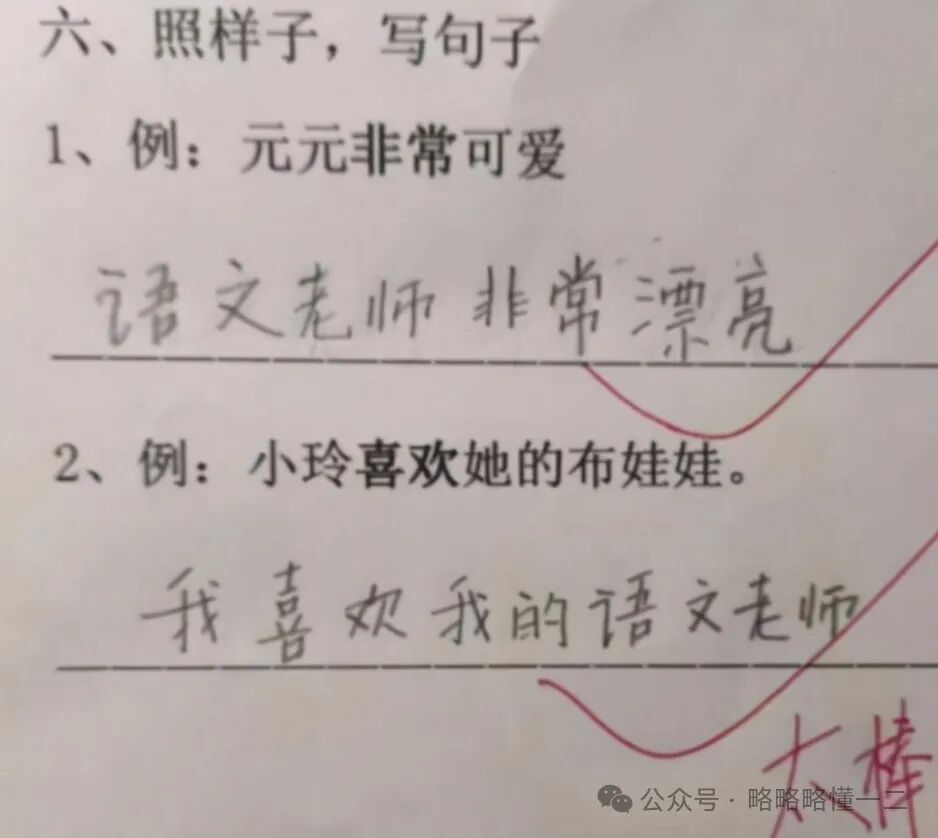 六、照样子，写句子
1、例：元元非常可爱
语文老师非常漂亮
2、例：小玲喜欢她的布娃娃。
我喜欢我的语文老师
太棒
公众号·略略略懂一二